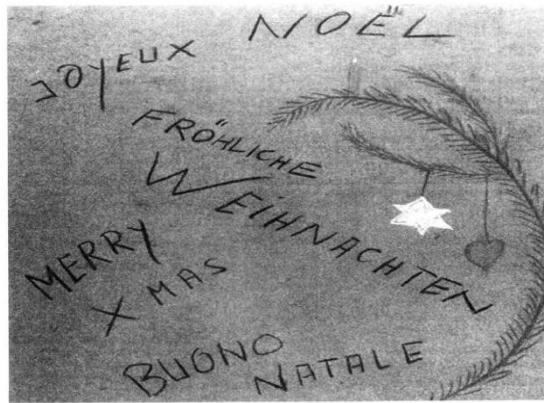 JOYEUX
NOËL
FRÖHLICHE
WEIHNACHTEN
MERRY
X MAS
BUONO
NATALE